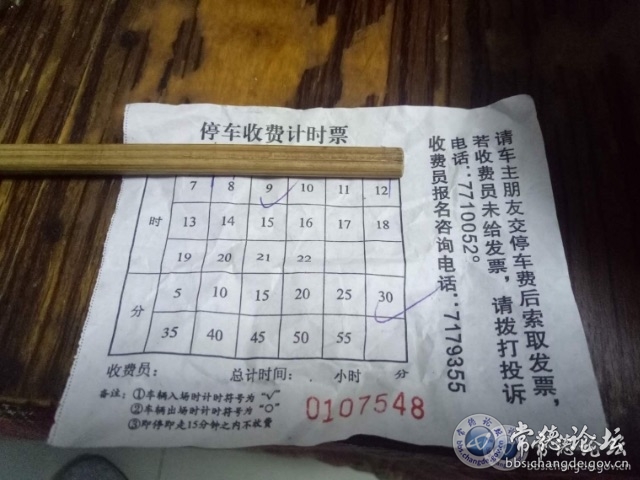 停车收费计时票
时
7 8 9 10 11 12
13 14 15 16 17 18
19 20 21 22
分
5 10 15 20 25 30
35 40 45 50 55
收费员： 总计时间： 小时 分
备注：①车辆入场时计时符号为“√”
②车辆出场时计时符号为“○”
③即停即走15分钟之内不收费
0107548
请车主朋友交停车费后索取发票，
若收费员未给发票，请拨打投诉
电话：7710052。
收费员报名咨询电话：7179355
常德论坛
bbs.changde.gov.cn